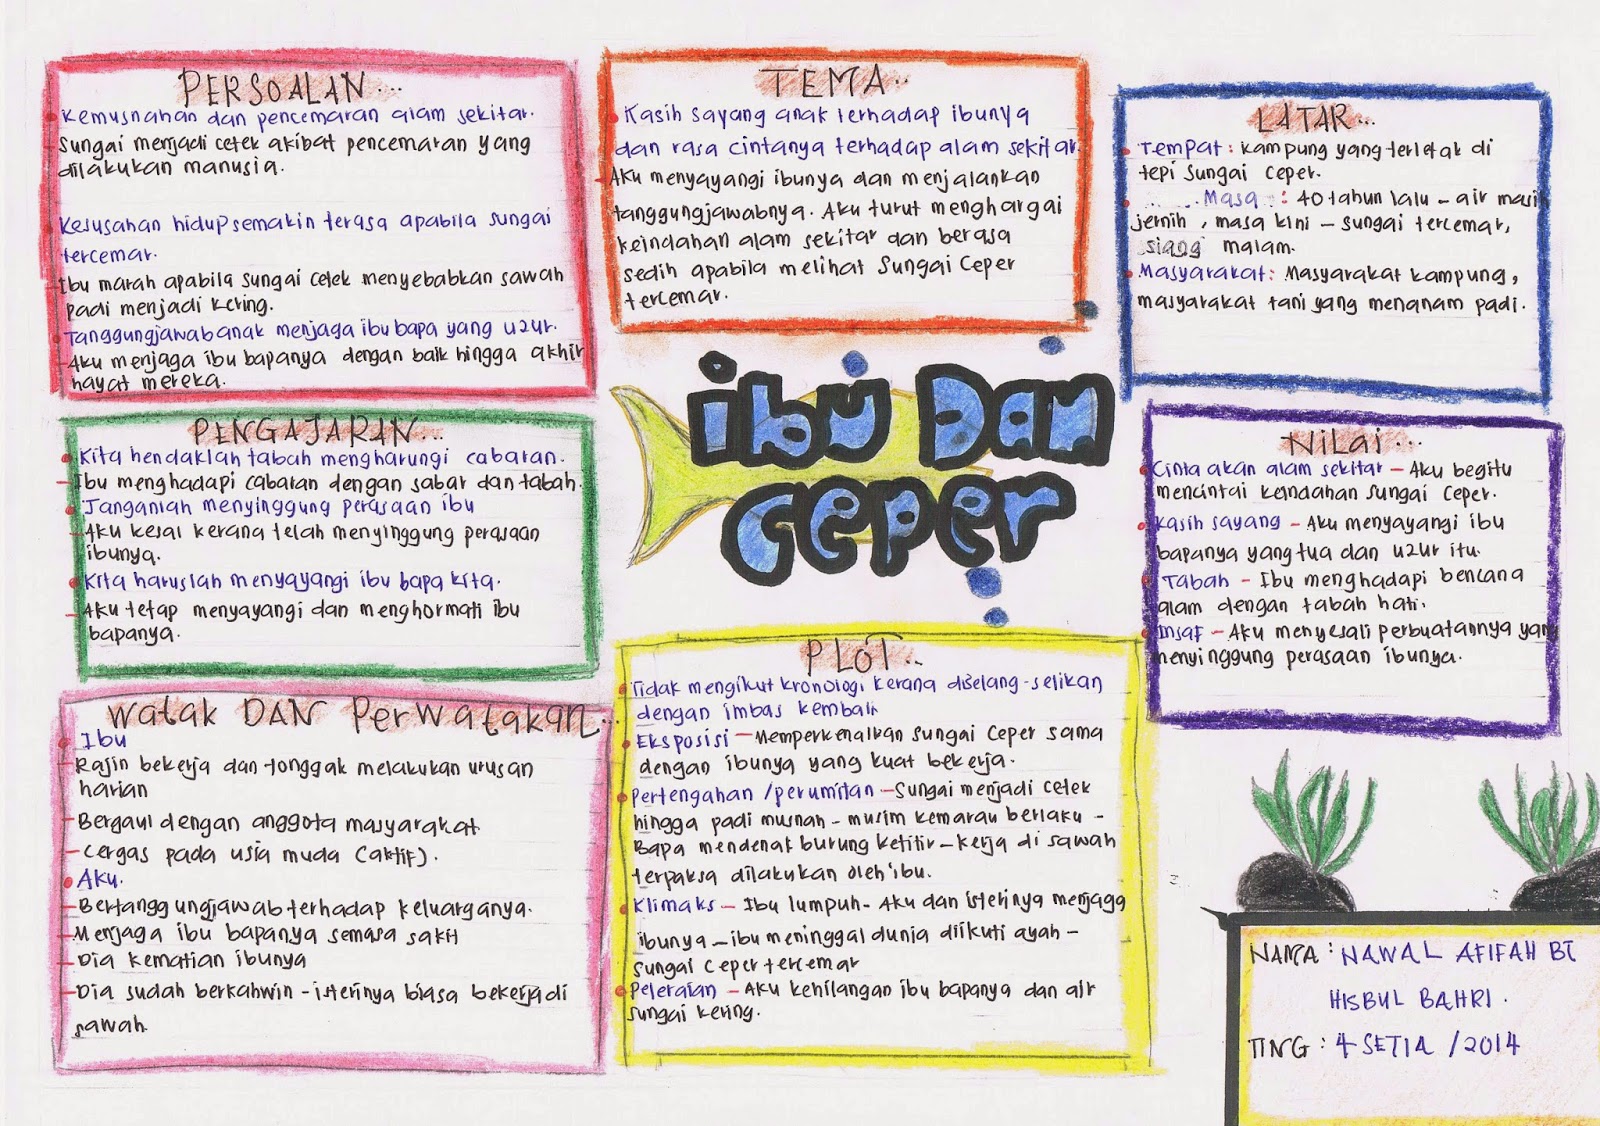 PERSOALAN...
Kemusnahan dan pencemaran alam sekitar.
Sungai menjadi cetek akibat pencemaran yang
dilakukan manusia.
Kesusahan hidup semakin terasa apabila sungai
tercemar.
Ibu marah apabila sungai cetek menyebabkan sawah
padi menjadi kering.
Tanggungjawab anak menjaga ibu bapa yang uzur.
Aku menjaga ibu bapanya dengan baik hingga akhir
hayat mereka.
PENGAJARAN...
Kita hendaklah tabah mengharungi cabaran.
Ibu menghadapi cabaran dengan sabar dan tabah.
Janganlah menyinggung perasaan ibu
Aku kesal kerana telah menyinggung perasaan
ibunya.
Kita haruslah menyayangi ibu bapa kita.
Aku tetap menyayangi dan menghormati ibu
bapanya.
Watak DAN Perwatakan...
Ibu
Rajin bekerja dan tonggak melakukan urusan
harian
Bergaul dengan anggota masyarakat
Cergas pada usia muda (aktif).
Aku.
Bertanggungjawab terhadap keluarganya.
Menjaga ibu bapanya semasa sakit
Dia kematian ibunya
Dia sudah berkahwin - isterinya biasa bekerja di
sawah.
TEMA..
Kasih sayang anak terhadap ibunya
dan rasa cintanya terhadap alam sekitar.
Aku menyayangi ibunya dan menjalankan
tanggungjawabnya. Aku turut menghargai
keindahan alam sekitar dan berasa
sedih apabila melihat Sungai Ceper
tercemar.
ibu Dan
Ceper
PLOT...
Tidak mengikut kronologi kerana diselang-selikan
dengan imbas kembali
Eksposisi - Memperkenalkan Sungai Ceper sama
dengan ibunya yang kuat bekerja.
Pertengahan / perumitan - Sungai menjadi cetek
hingga padi musnah - musim kemarau berlaku -
Bapa mendenak burung ketitir - kerja di sawah
terpaksa dilakukan oleh ibu.
Klimaks - Ibu lumpuh - Aku dan isterinya menjaga
ibunya - ibu meninggal dunia diikuti ayah -
Sungai Ceper tercemar
Peleraian - Aku kehilangan ibu bapanya dan air
sungai kering.
LATAR...
Tempat : Kampung yang terletak di
tepi Sungai Ceper.
Masa : 40 tahun lalu - air masih
jernih, masa kini - sungai tercemar,
siang malam.
Masyarakat : Masyarakat kampung,
masyarakat tani yang menanam padi.
Nilai...
Cinta akan alam sekitar - Aku begitu
mencintai keindahan Sungai Ceper.
Kasih sayang - Aku menyayangi ibu
bapanya yang tua dan uzur itu.
Tabah - Ibu menghadapi bencana
alam dengan tabah hati.
Insaf - Aku menyesali perbuatannya yang
menyinggung perasaan ibunya.
NAMA : NAWAL AFIFAH BT
HISBUL BAHRI.
TING : 4 SETIA / 2014